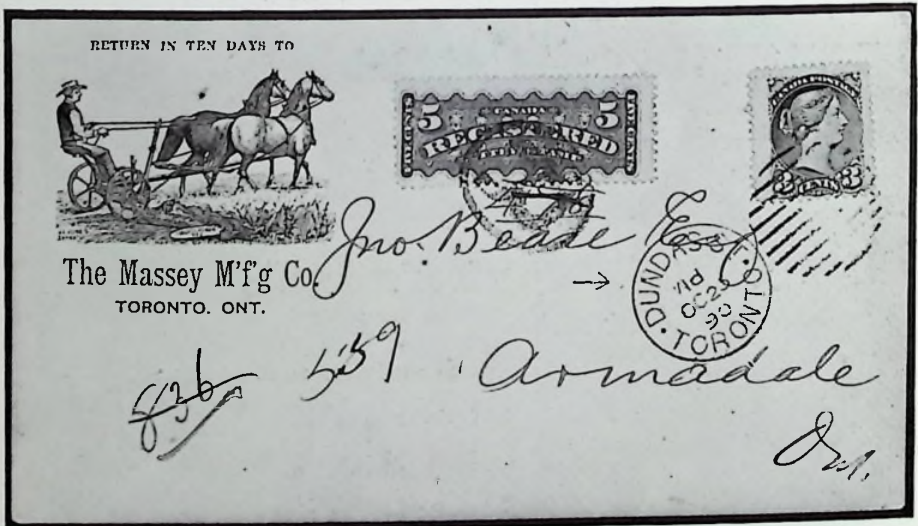 RETURN IN TEN DAYS TO
The Massey M'f'g Co.
TORONTO. ONT.
5 CANADA 5
REGISTERED
CANADA POSTAGE
3 CENTS 3
Jno. Beade Esq.
DUNDAS ST.
OC 23
90
TORONTO
836
559
Armadale
Ont.